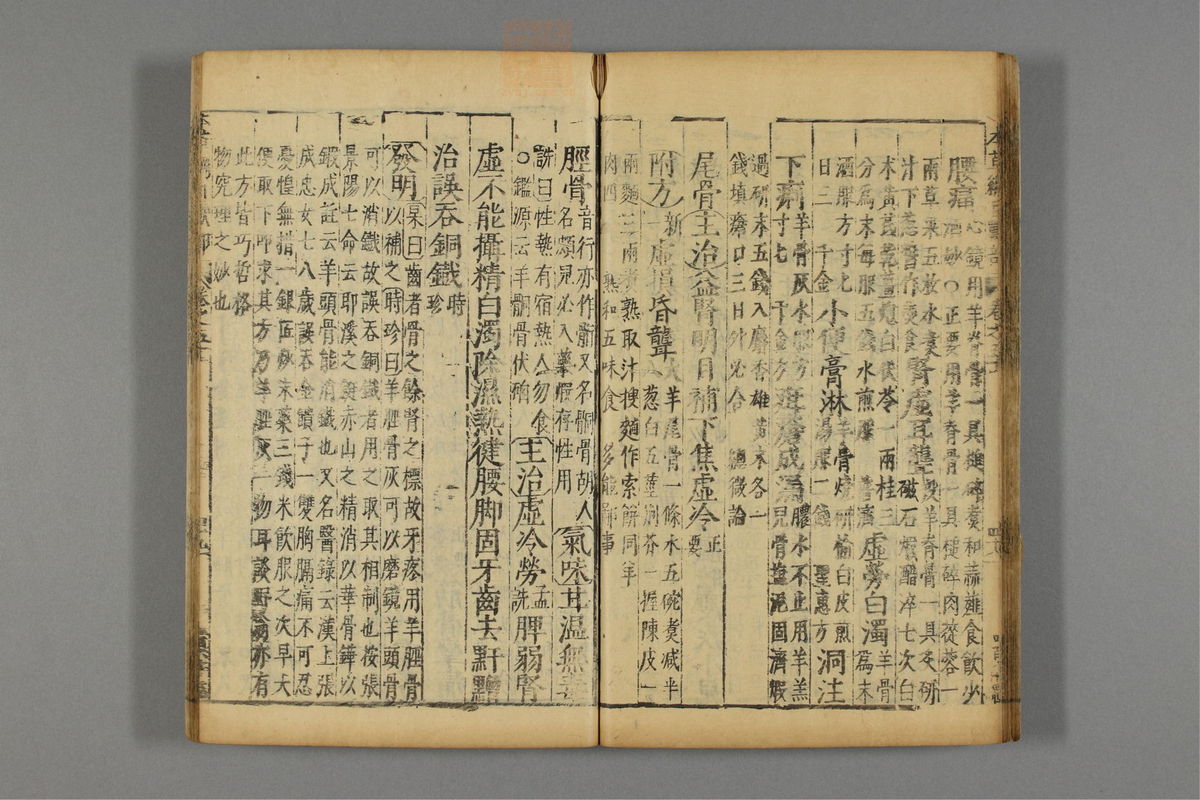 腰痛心鏡用羊脊骨一具搥碎煮和蒜薤食飲少
酒妙○正要用羊脊骨一具搥碎肉蓯蓉一
兩草果五莢水煮
汁下葱醬作羹食腎虛耳聾磁石煅醋淬七次白
日三千金小便膏淋羊骨燒研榆白皮煎湯服二錢聖惠方洞注
下痢羊骨灰水服方寸匕千金方疳瘡成漏膿水不止用羊羔兒骨鹽泥固濟煅
過研末五錢入麝香雄黃末各一
錢填瘡口三日外必合總微論
尾骨主治益腎明目補下焦虛冷正要
附方新一虛損昏聾羊尾骨一條水五碗煮减半
入葱白五莖荆芥一握陳皮一
兩麵三兩煮熟取汁搜麵作索餅同羊
肉四兩煮熟和五味食多能鄙事
脛骨音行亦作䯒又名骱骨胡人
名頗兒必入藥煆存性用氣味甘温無毒
詵曰性熱有宿熱人勿食
○鑑源云羊䯒骨伏硇主治虛冷勞孟詵脾弱腎
虛不能攝精白濁除濕熱健腰脚固牙齒去䵟䵳
治誤吞銅鐵時珍
發明杲曰齒者骨之餘腎之標故牙疼用羊脛骨
以補之時珍曰羊脛骨灰可以磨鏡羊頭骨
可以消鐵故誤吞銅鐵者用之取其相制也按張
景陽七命云耶溪之鋌赤山之精消以羊骨鏷以
鍛成註云羊頭骨能消鐵也又名醫錄云漢上張
成忠女七八歲誤吞金鐕子一雙胸膈痛不可忍
憂惶無措一銀匠炒末藥三錢米飲服之次早大
便取下叩求其方乃羊脛灰一物耳談野翁亦有
此方皆巧哲格
物究理之妙也